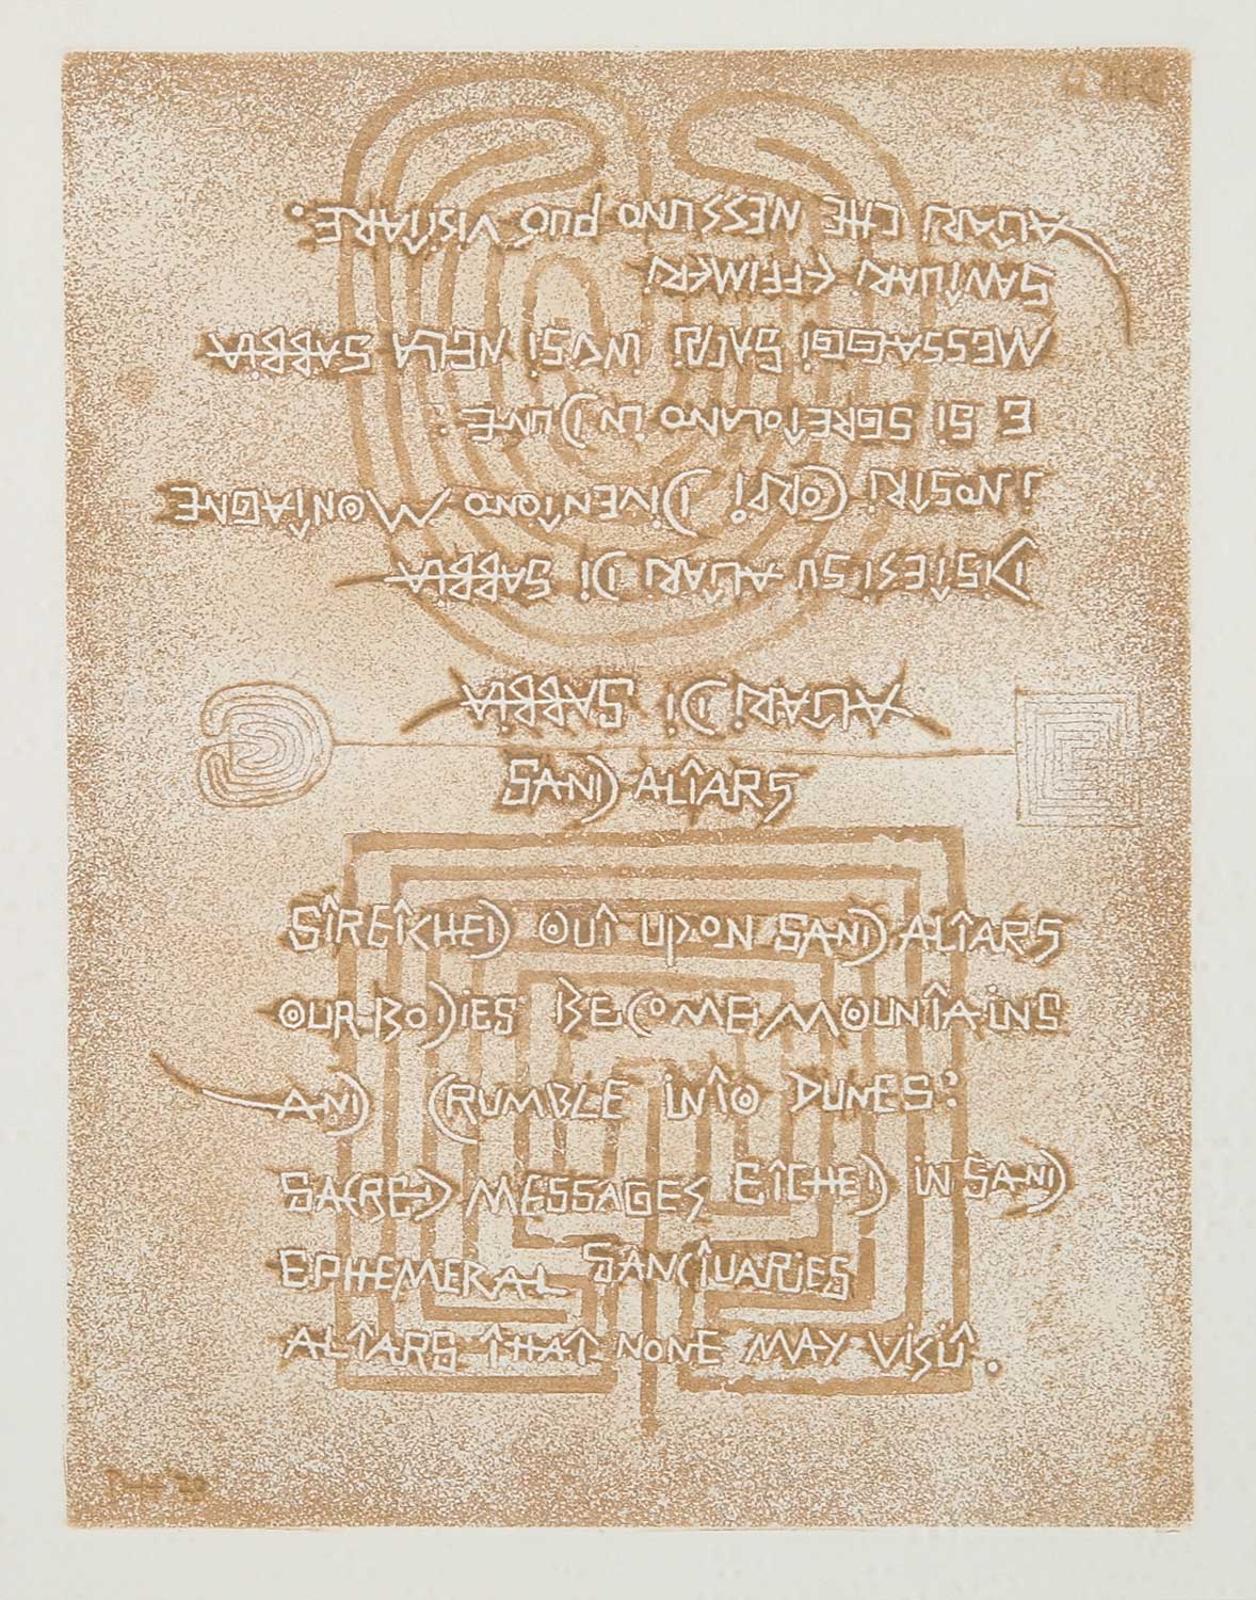 ALTARI DI SABBIA
DISTESI SU ALTARI DI SABBIA
I NOSTRI CORPI DIVENTONO MONTAGNE
E SI SGRETOLANO IN DUNE:
MESSAGGI SACRI INCISI NELA SABBIA
SANTUARI EFFIMERI
ALTARI CHE NESSUNO PUÓ VISITARE.
SAND ALTARS
STRETCHED OUT UPON SAND ALTARS
OUR BODIES BECOME MOUNTAINS
AND CRUMBLE INTO DUNES:
SACRED MESSAGES ETCHED IN SAND
EPHEMERAL SANCTUARIES
ALTARS THAT NONE MAY VISIT.